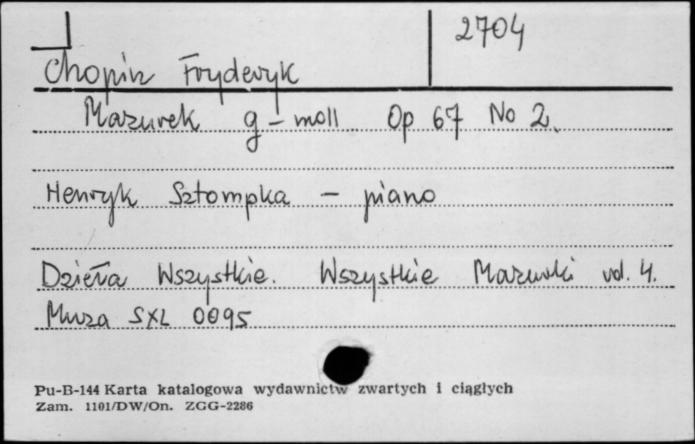 2704
Chopin Fryderyk
Mazurek g-moll Op 67 No 2.
Henryk Sztompka - piano
Dzieła Wszystkie. Wszystkie Mazurki vol. 4.
Muza SXL 0095
Pu-B-144 Karta katalogowa wydawnictw zwartych i ciągłych
Zam. 1101/DW/On. ZGG-2286